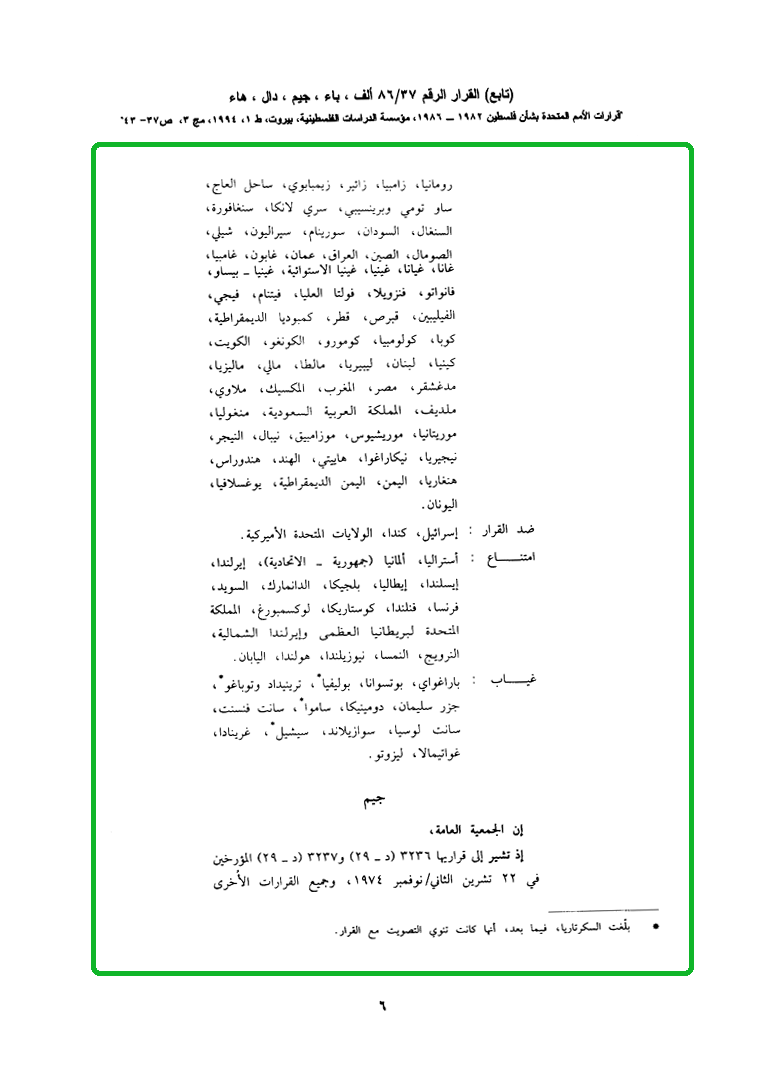 (تابع) القرار الرقم ٨٦/٣٧ ألف ، باء ، جيم ، دال ، هاء
"قرارات الأمم المتحدة بشأن فلسطين ١٩٨٢ ــ ١٩٨٦، مؤسسة الدراسات الفلسطينية، بيروت، ط ١، ١٩٩٤، مج ٣، ص٣٧- ٤٣"
رومانيا، زامبيا، زائير، زيمبابوي، ساحل العاج،
ساو تومي وبرينسيبي، سري لانكا، سنغافورة،
السنغال، السودان، سورينام، سيراليون، شيلي،
الصومال، الصين، العراق، عمان، غابون، غامبيا،
غانا، غيانا، غينيا، غينيا الاستوائية، غينيا ــ بيساو،
فانواتو، فنزويلا، فولتا العليا، فيتنام، فيجي،
الفيليبين، قبرص، قطر، كمبوديا الديمقراطية،
كوبا، كولومبيا، كومورو، الكونغو، الكويت،
كينيا، لبنان، ليبيريا، مالطا، مالي، ماليزيا،
مدغشقر، مصر، المغرب، المكسيك، ملاوي،
ملديف، المملكة العربية السعودية، منغوليا،
موريتانيا، موريشيوس، موزامبيق، نيبال، النيجر،
نيجيريا، نيكاراغوا، هاييتي، الهند، هندوراس،
هنغاريا، اليمن، اليمن الديمقراطية، يوغسلافيا،
اليونان.
ضد القرار : إسرائيل، كندا، الولايات المتحدة الأميركية.
امتنـــــاع : أستراليا، ألمانيا (جمهورية ــ الاتحادية)، إيرلندا،
إيسلندا، إيطاليا، بلجيكا، الدانمارك، السويد،
فرنسا، فنلندا، كوستاريكا، لوكسمبورغ، المملكة
المتحدة لبريطانيا العظمى وإيرلندا الشمالية،
النرويج، النمسا، نيوزيلندا، هولندا، اليابان.
غيـــــاب : باراغواي، بوتسوانا، بوليفيا*، ترينيداد وتوباغو*،
جزر سليمان، دومينيكا، ساموا*، سانت فنسنت،
سانت لوسيا، سوازيلاند، سيشيل*، غرينادا،
غواتيمالا، ليزوتو.
جيم
إن الجمعية العامة،
إذ تشير إلى قراريها ٣٢٣٦ (د ــ ٢٩) و٣٢٣٧ (د ــ ٢٩) المؤرخين
في ٢٢ تشرين الثاني/نوفمبر ١٩٧٤، وجميع القرارات الأخرى
• بلّغت السكرتاريا، فيما بعد، أنها كانت تنوي التصويت مع القرار.
٦